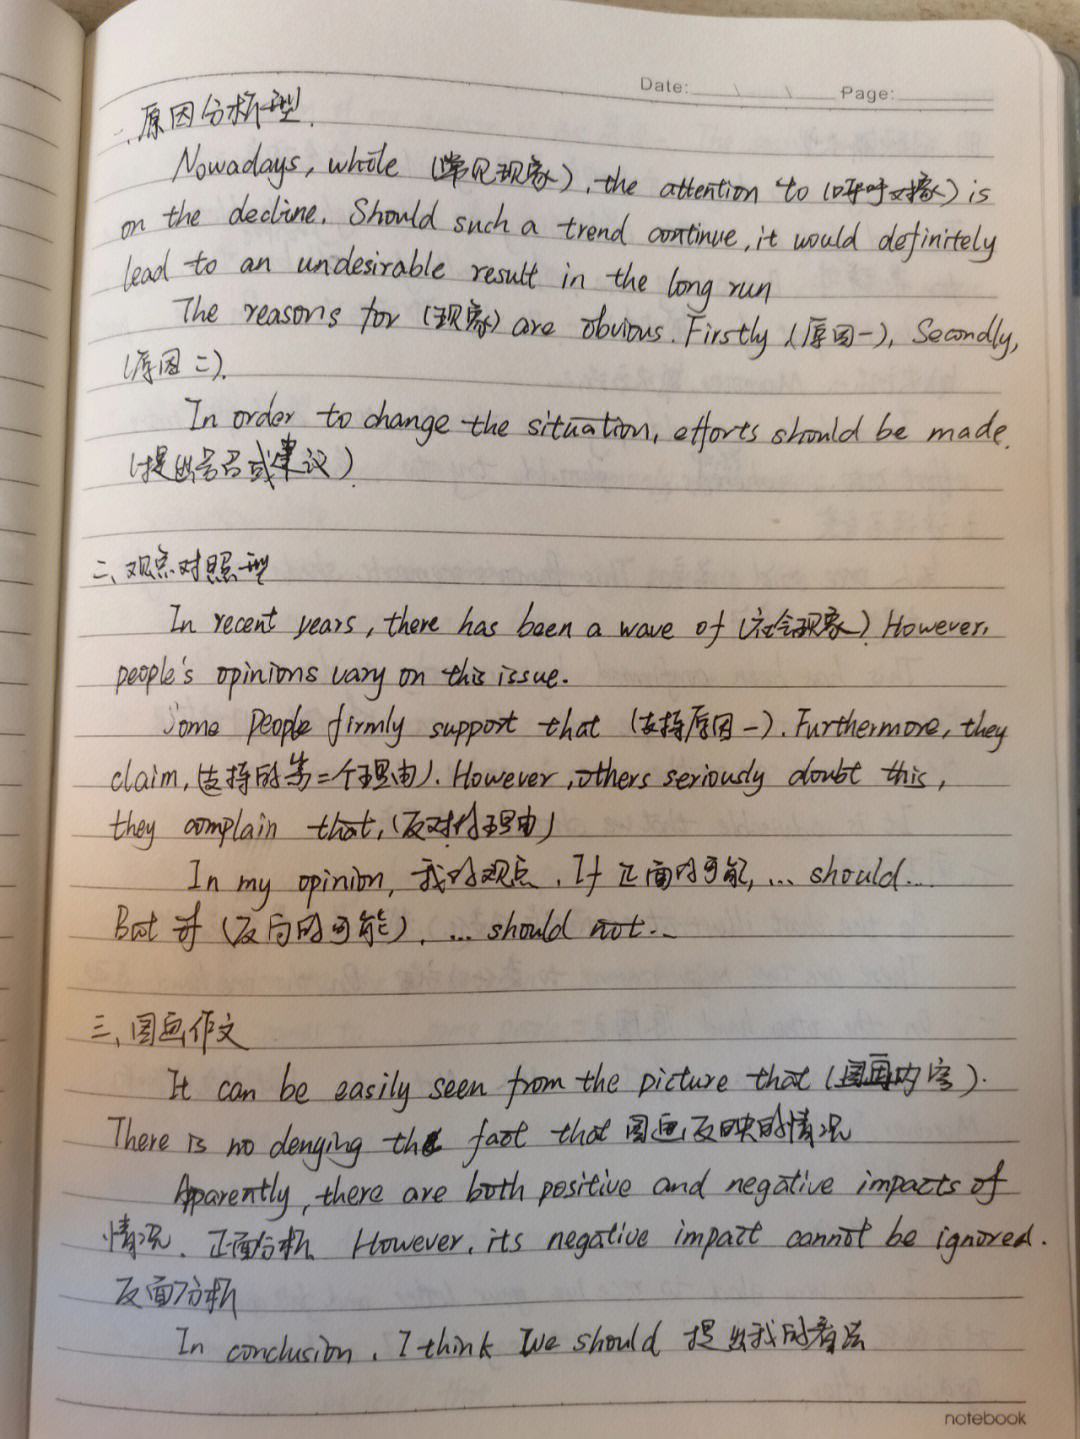 Date: \ \ Page:
一.原因分析型.
Nowadays, whole (常见现象), the attention to (呼吁对象) is
on the decline. Should such a trend continue, it would definitely
lead to an undesirable result in the long run
The reasons for (现象) are obvious. Firstly (原因一), Secondly,
(原因二).
In order to change the situation, efforts should be made.
(提出号召或建议)
二、观点对照型
In recent years, there has been a wave of (社会现象) However,
people's opinions vary on this issue.
Some people firmly support that (支持原因一). Furthermore, they
claim, (支持的第二个理由). However, others seriously doubt this,
they complain that, (反对的理由)
In my opinion, 我的观点. If 正面的可能, ... should...
But if (反向的可能), ... should not...
三、图画作文
It can be easily seen from the picture that (图画内容).
There is no denying the fact that 图画反映的情况
Apparently, there are both positive and negative impacts of
情况. 正面分析. However, its negative impact cannot be ignored.
反面分析
In conclusion, I think We should 提出我的看法
notebook